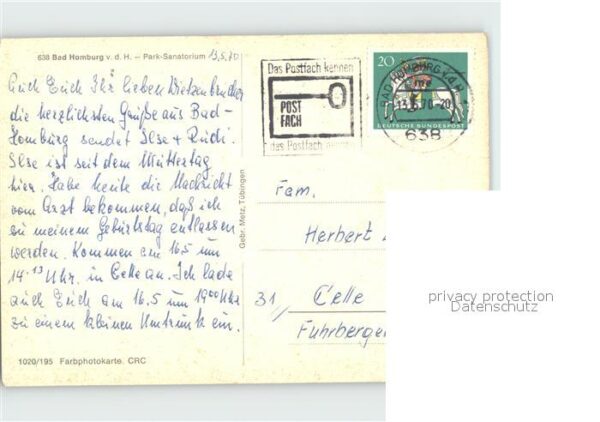 638 Bad Homburg v. d. H. — Park-Sanatorium 13.5.70
Auch Euch Ihr lieben
die herzlichsten Grüße aus Bad-
Homburg sendet Ilse + Rudi.
Ilse ist seit dem Muttertag
hier. Habe heute die Nachricht
vom Arzt bekommen, daß ich
zu meinem Geburtstag entlassen
werden. Kommen am 16.5 um
14.13 Uhr. in Celle an. Ich lade
auch Euch am 16.5 um 1900 Uhr
zu einem kleinen Umtrunk ein.
1020/195 Farbphotokarte. CRC
Gebr. Metz, Tübingen
Das Postfach kennen
POST
FACH
das Postfach
20
DEUTSCHE BUNDESPOST
BAD HOMBURG v.d.H.
13.5.70-20
638
Fam.
Herbert
31/ Celle
Fuhrberger
privacy protection
Datenschutz